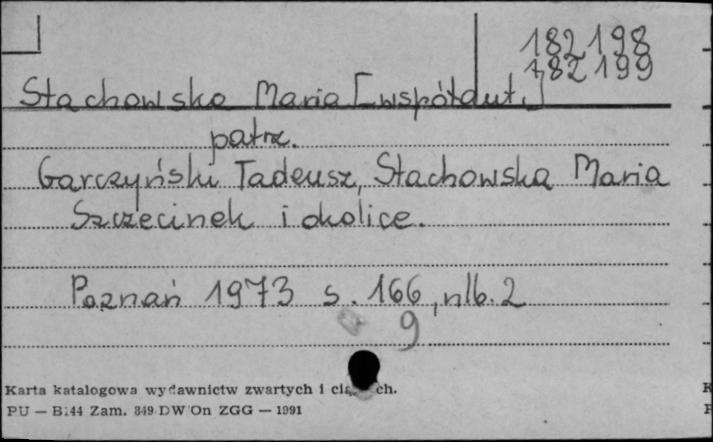 182198
182199
Stachowska Maria [współaut.]
patrz.
Garczyński Tadeusz, Stachowska Maria
Szczecinek i okolice.
Poznań 1973 s. 166, nlb. 2
9
Karta katalogowa wydawnictw zwartych i ch.
PU — B.44 Zam. 349 DW On ZGG — 1991